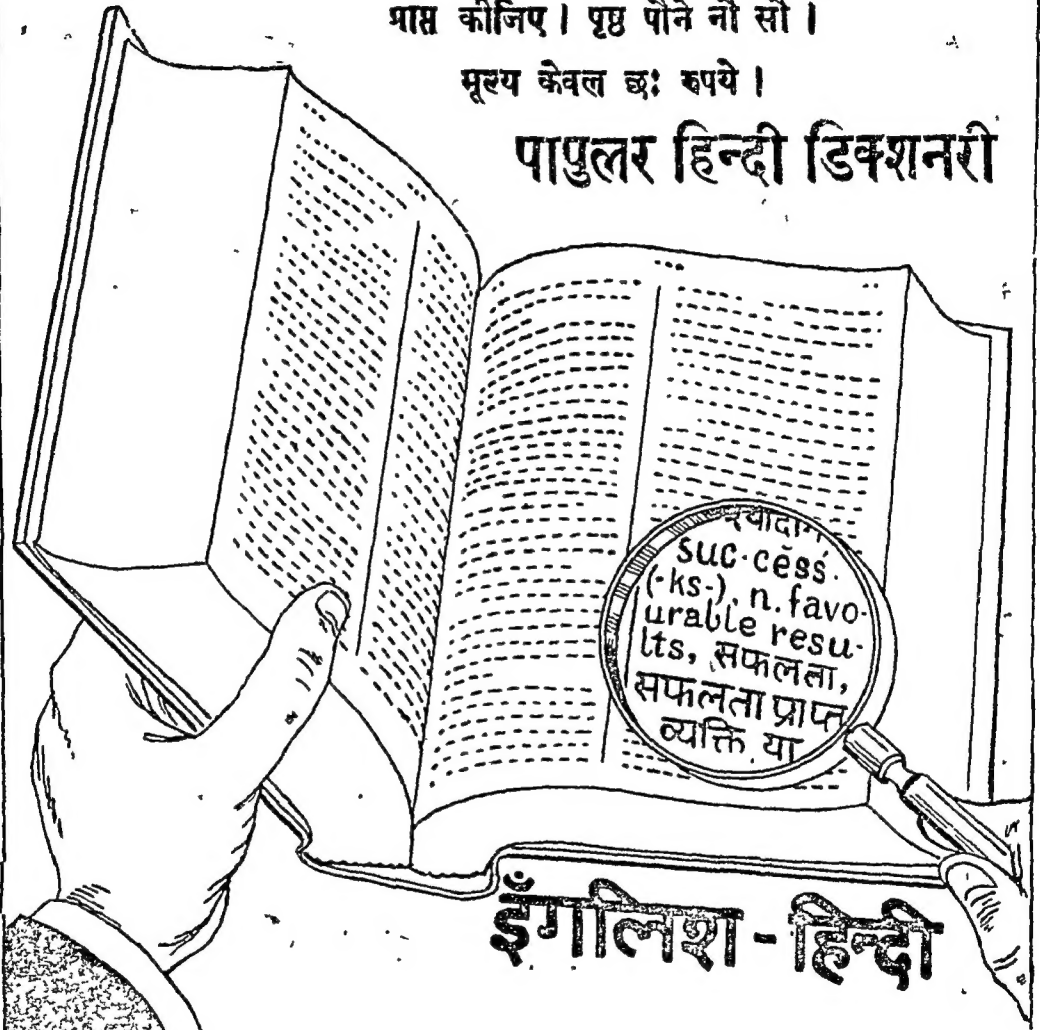 प्राप्त कीजिए । पृष्ठ पौने नौ सौ ।
मूल्य केवल छः रुपये ।
पापुलर हिन्दी डिक्शनरी
suc·cĕss′
(-ks-), n. favo-
urable resu-
lts, सफलता,
सफलता प्राप्त
व्यक्ति या
इँगलिश-हिन्दी